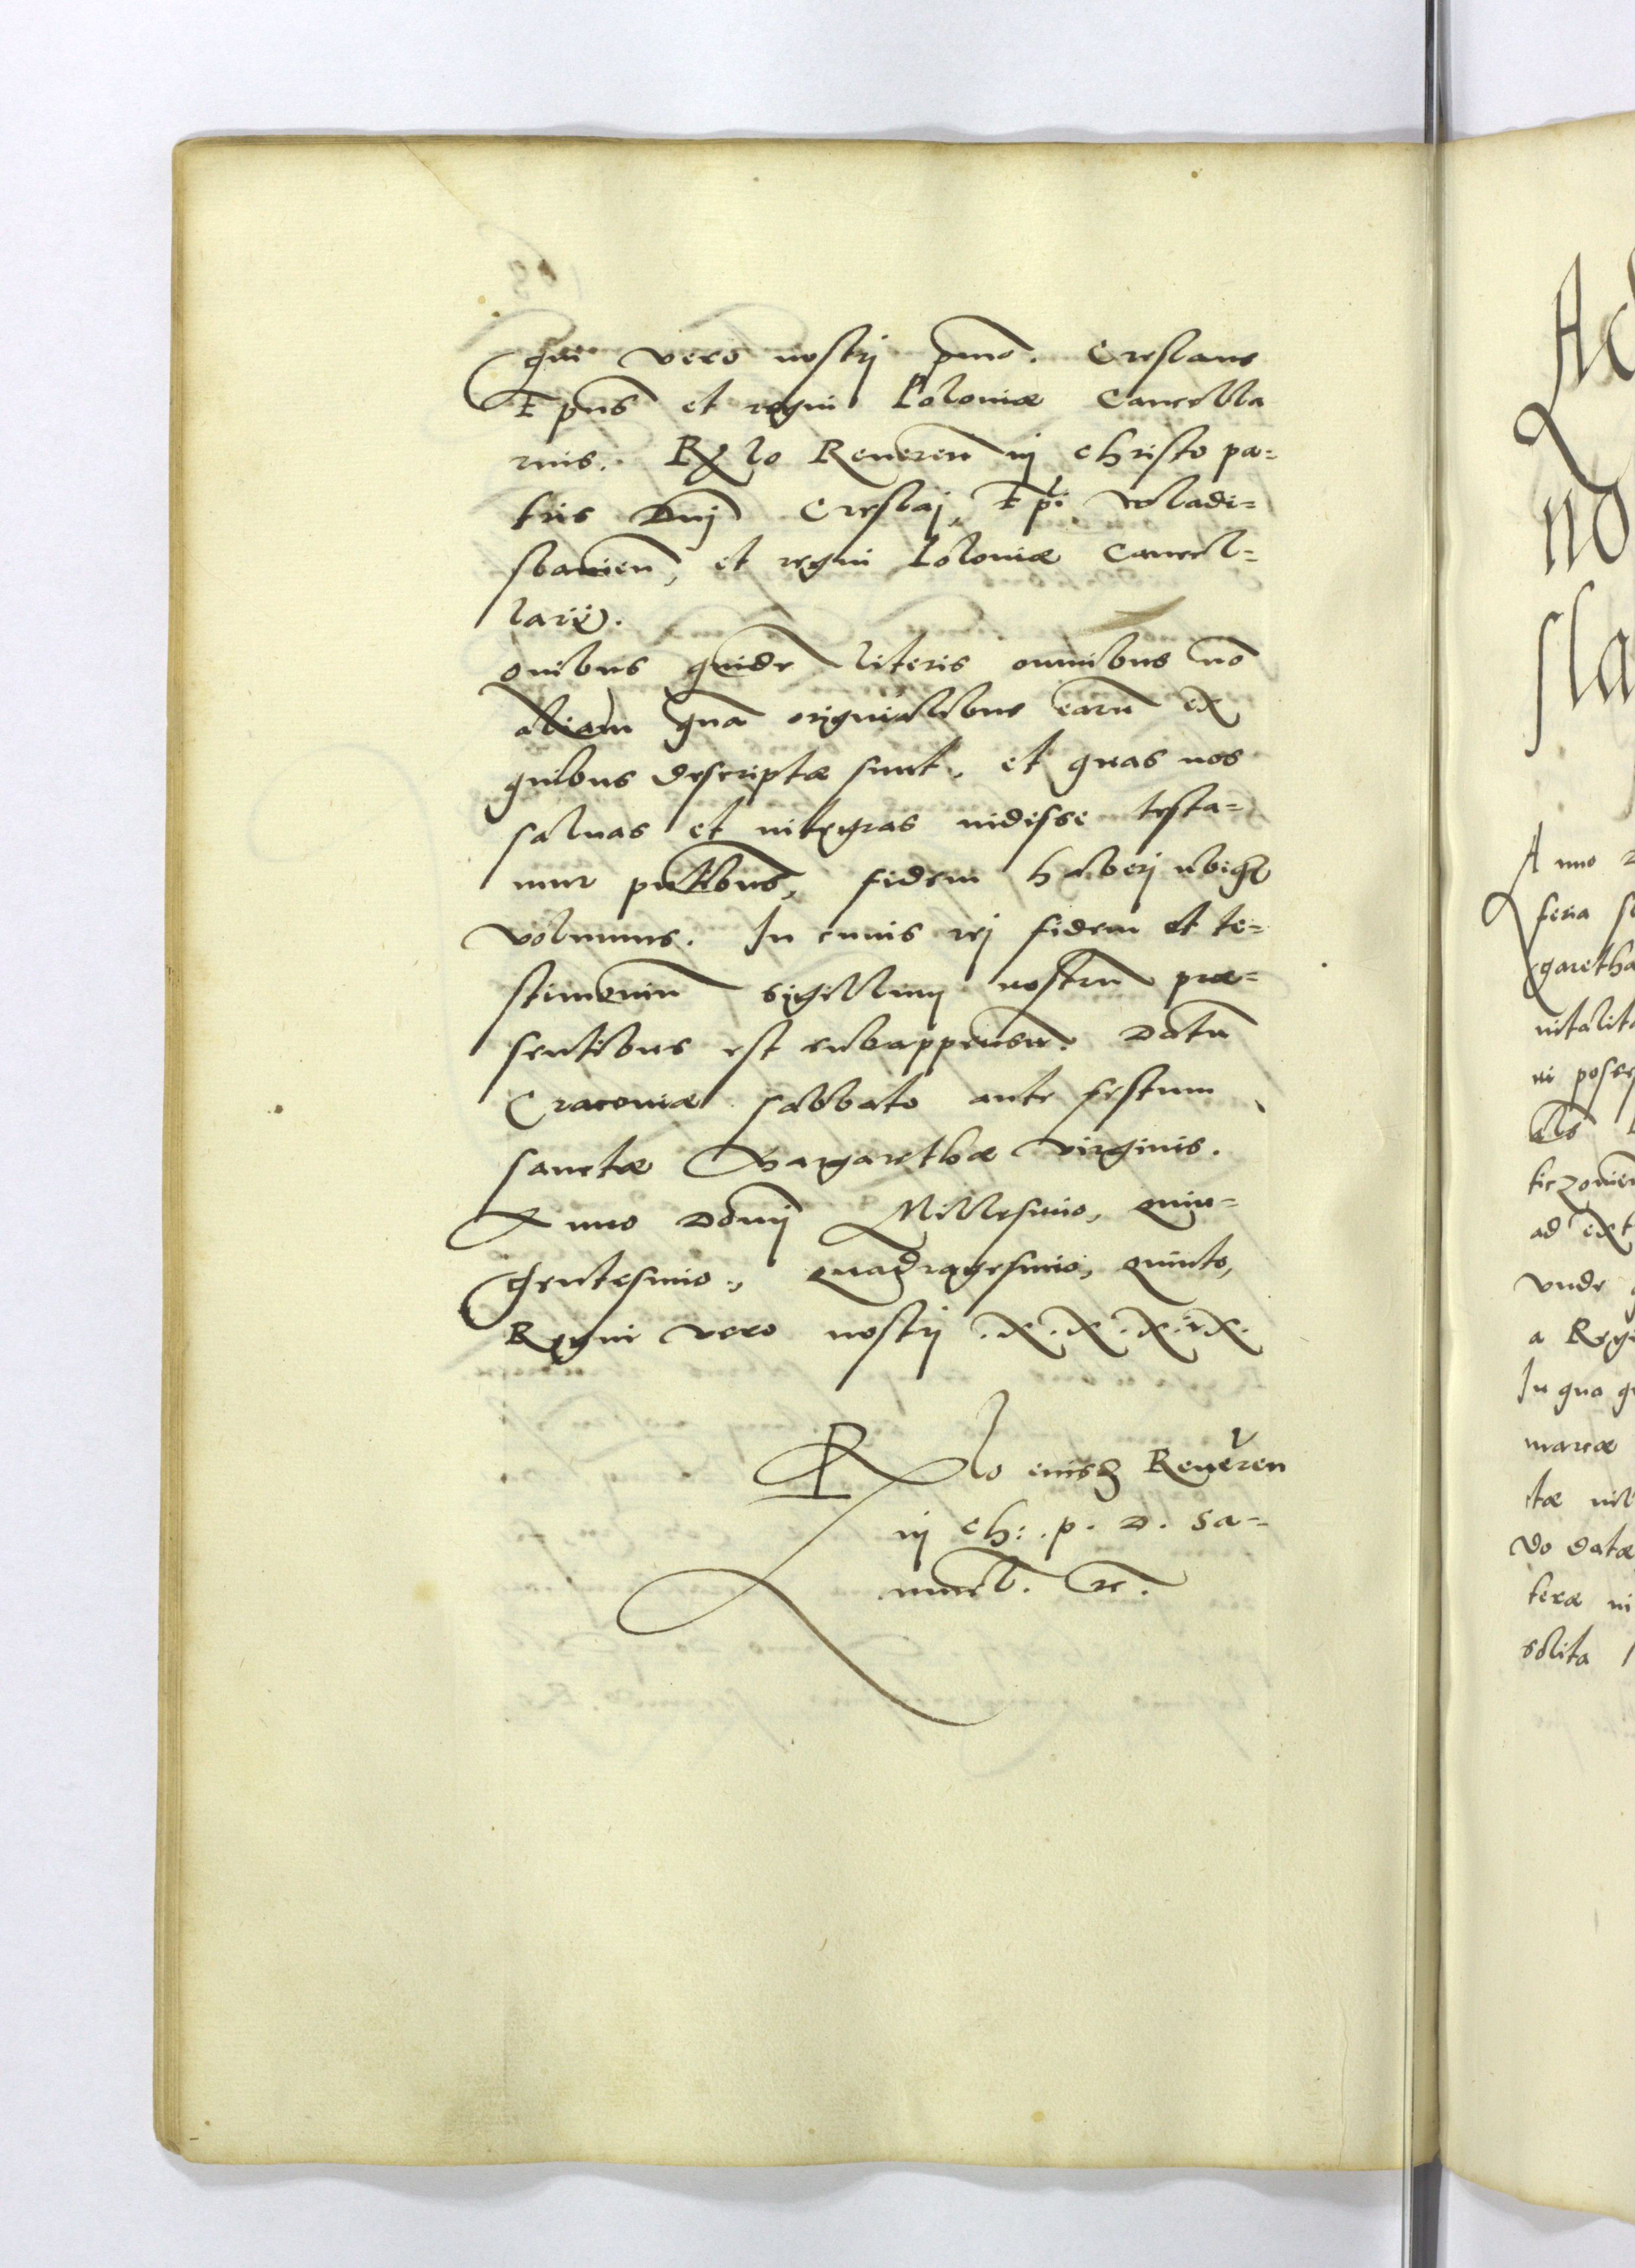 gni vero nostrj pmo. Creslaus
Epus et regni Poloniæ Cancella
rius. Relo Reueren ĩ Christo pa=
tris Dnj Creslaj, Epi Wladi=
slauien, et regni Poloniæ Cancel=
larij.
Quibus quidē literis omnibus nō
aliam quā originalibus earū ex
quibus descriptæ sunt, et quas nos
saluas et integras uidisse testa=
mur pntibus, fidem haberj ubiq
volumus. In cuius rej fidem et te=
stimoniū sigillum nostrū præ=
sentibus est subappensū. Datū
Cracouiæ sabbato ante festum
sanctæ Margarethæ virginis.
Anno Domj Millesimo, quin=
gentesimo, quadragesimo, quinto,
Regni vero nostrj .X.X.X.IX.
Relo eiusdē Reueren
ĩ Ch: .p. D. Sa=
muel. etc.
Anno
feria
garetha
uitalita
ni
als
ad ext
vnde
a Reg
In quo
marcæ
tæ
do datæ
teræ
solita